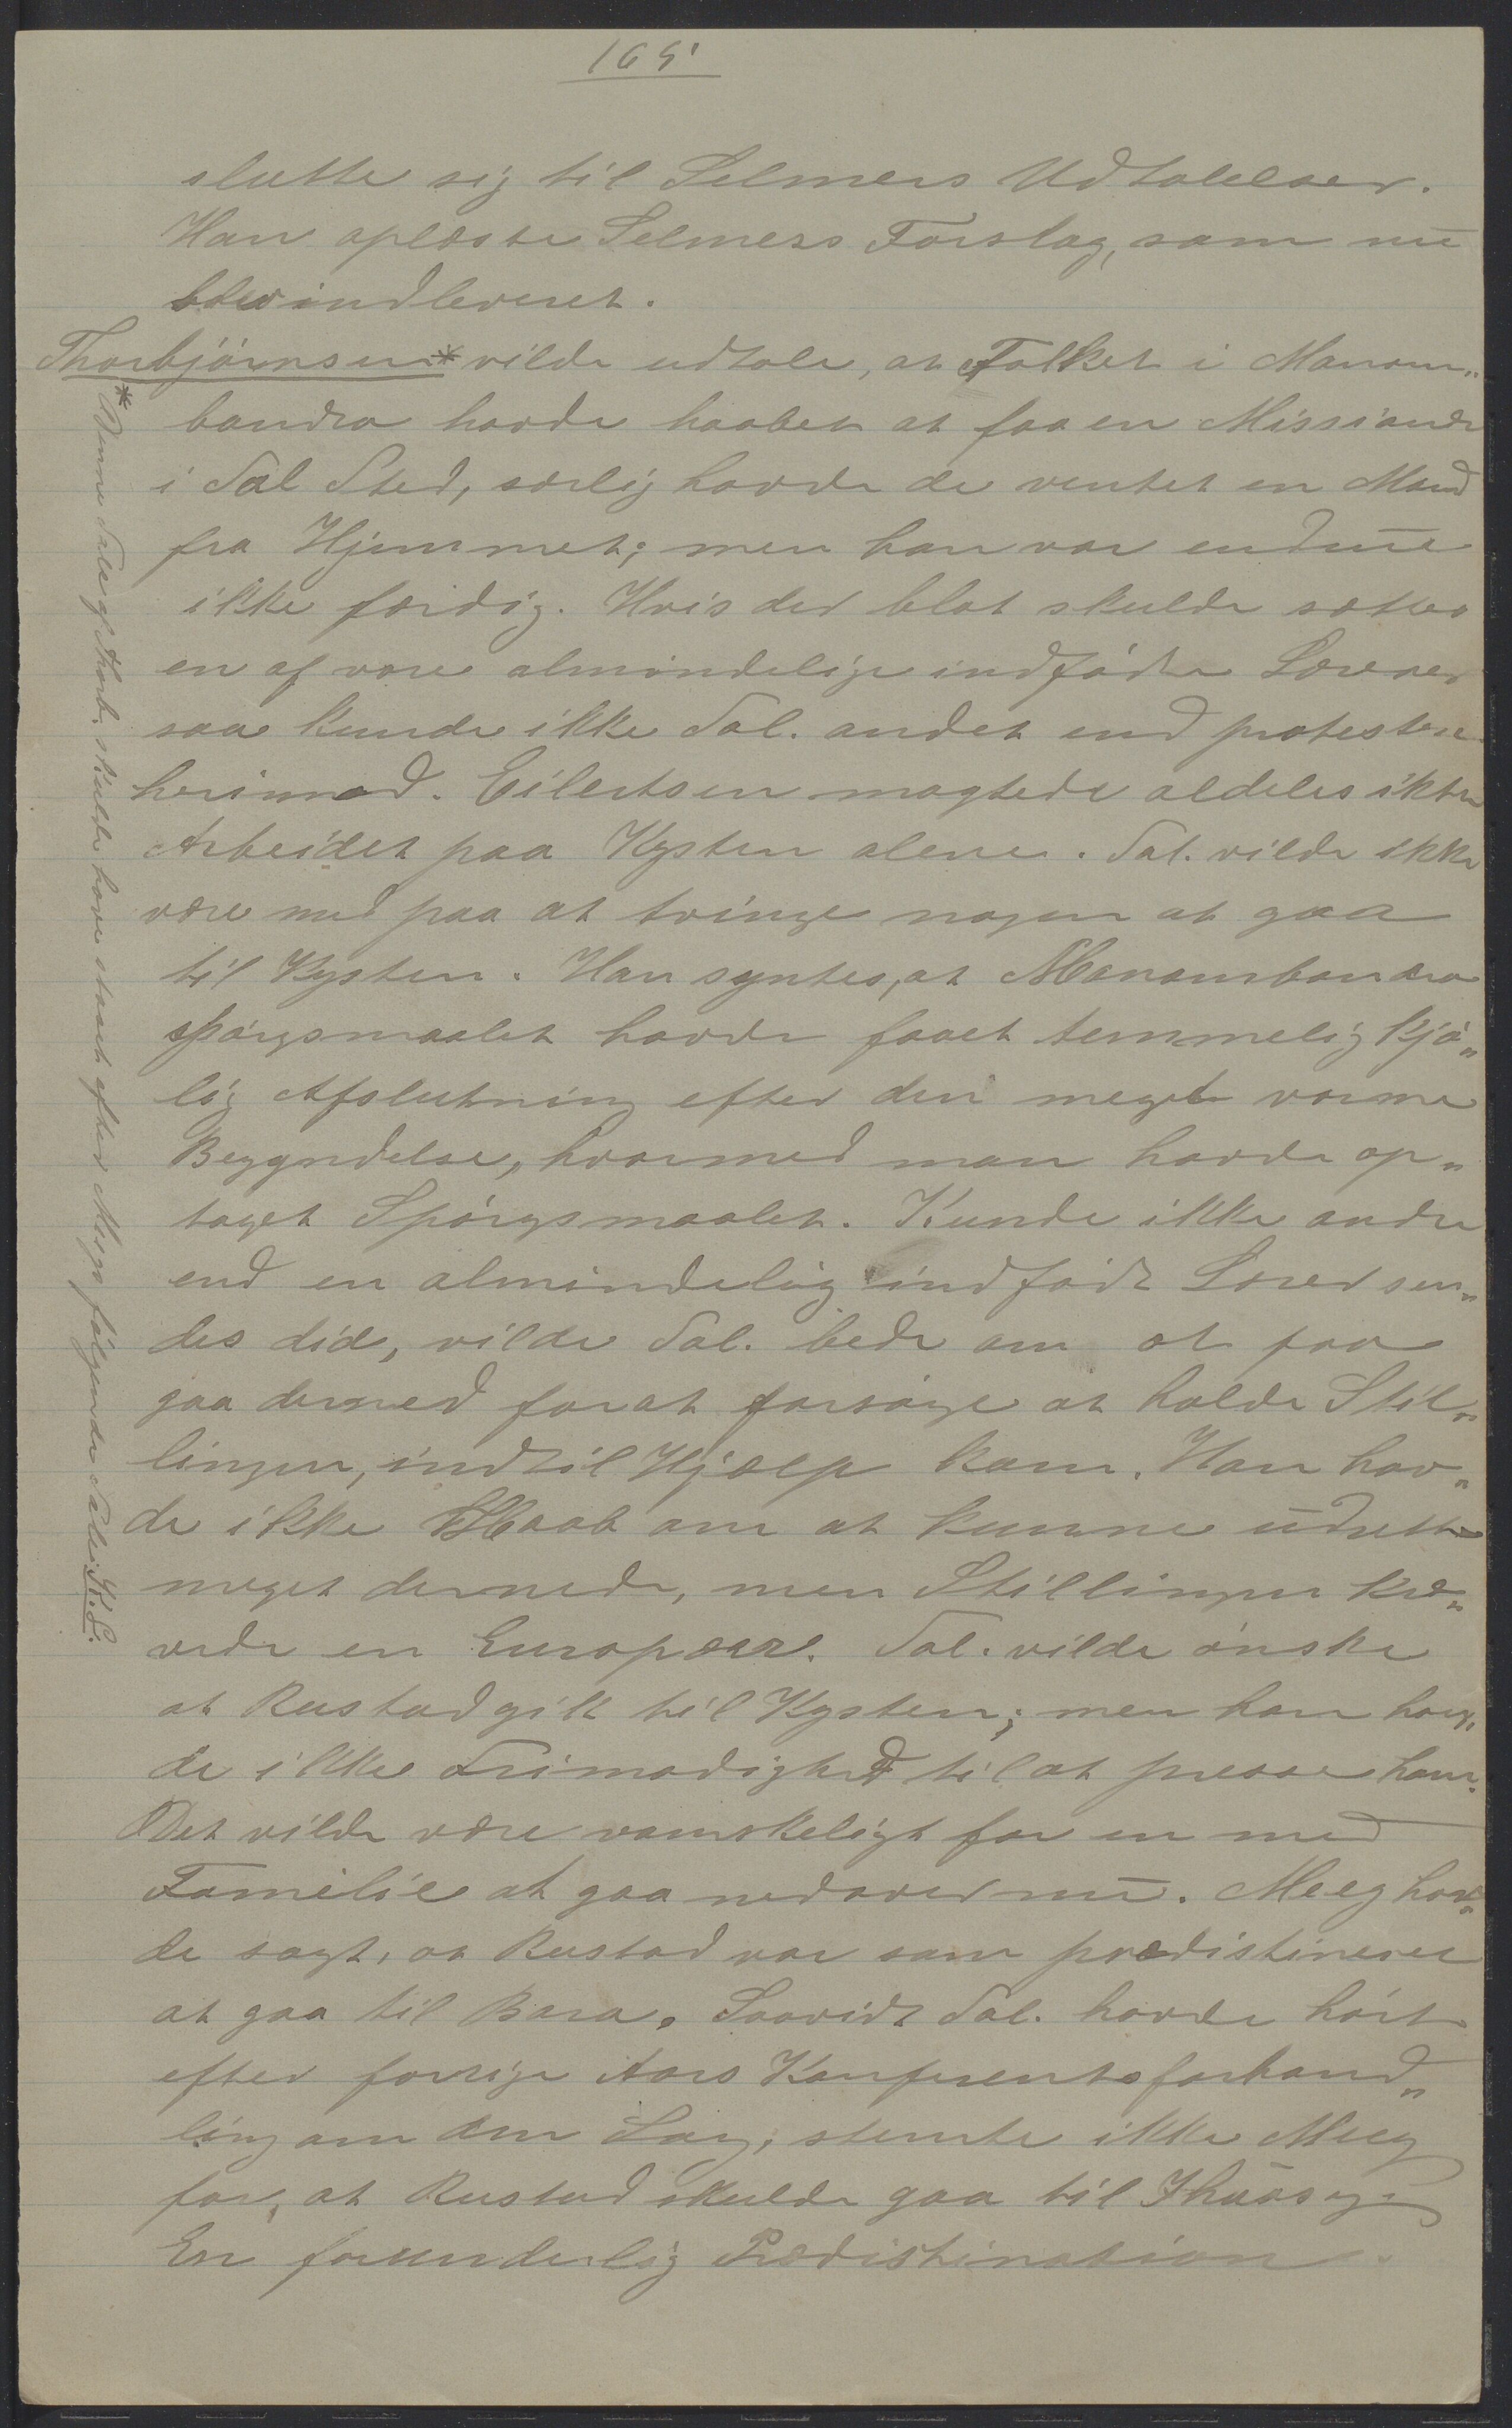 165
slutte sig til Selmers Udtalelser.
Han oplæste Selmers Forslag, som nu
blev indleveret.
Thorbjörnsen* vilde udtale, at Folket i Manam„
bandro havde haabet at faa en Missionær
i Sal Sted, særlig havde de ventet en Mand
fra Hjemmet; men han var endnu
ikke færdig. Hvis der blot skulde sættes
en af vore almindelige indfødte Lærere
saa kunde ikke Tal. andet end protestere
herimod. Eilertsen magtede aldeles ikke
Arbeidet paa Kysten alene. Tal. vilde ikke
være med paa at tvinge nogen at gaa
til Kysten. Han syntes, at Manambondro
spörgsmaalet havde faaet temmelig kjö„
lig Afslutning efter den meget varme
Begyndelse, hvormed man havde op„
taget Spörgsmaalet. Kunde ikke andre
end en almindelig indfödt Lærer sen„
des did, vilde Tal. bede om at faa
gaa derned forat forsöge at holde Stil„
lingen, indtil Hjælp kom. Han hav„
de ikke Haab om at kunne udrette
meget dernede, men Stillingen kræ„
vede en Europæer. Tal. vilde önske
at Rustad gik til Kysten; men han hav„
de ikke Frimodighed til at presse ham.
Det vilde være vanskeligt for en med
Familie at gaa nedover nu. Meeg hav„
de sagt, at Rustad var som prædistineret
at gaa til Bara. Saavidt Tal. havde hört
efter forrige Aars Konferentsforhand„
ling om den Sag, stemte ikke Meeg
for, at Rustad skulde gaa til Ihosy.
En forunderlig Prædistination.
*Denne Tale af Thorb. skulde have staaet efter Meegs følgende Tale. K. L.